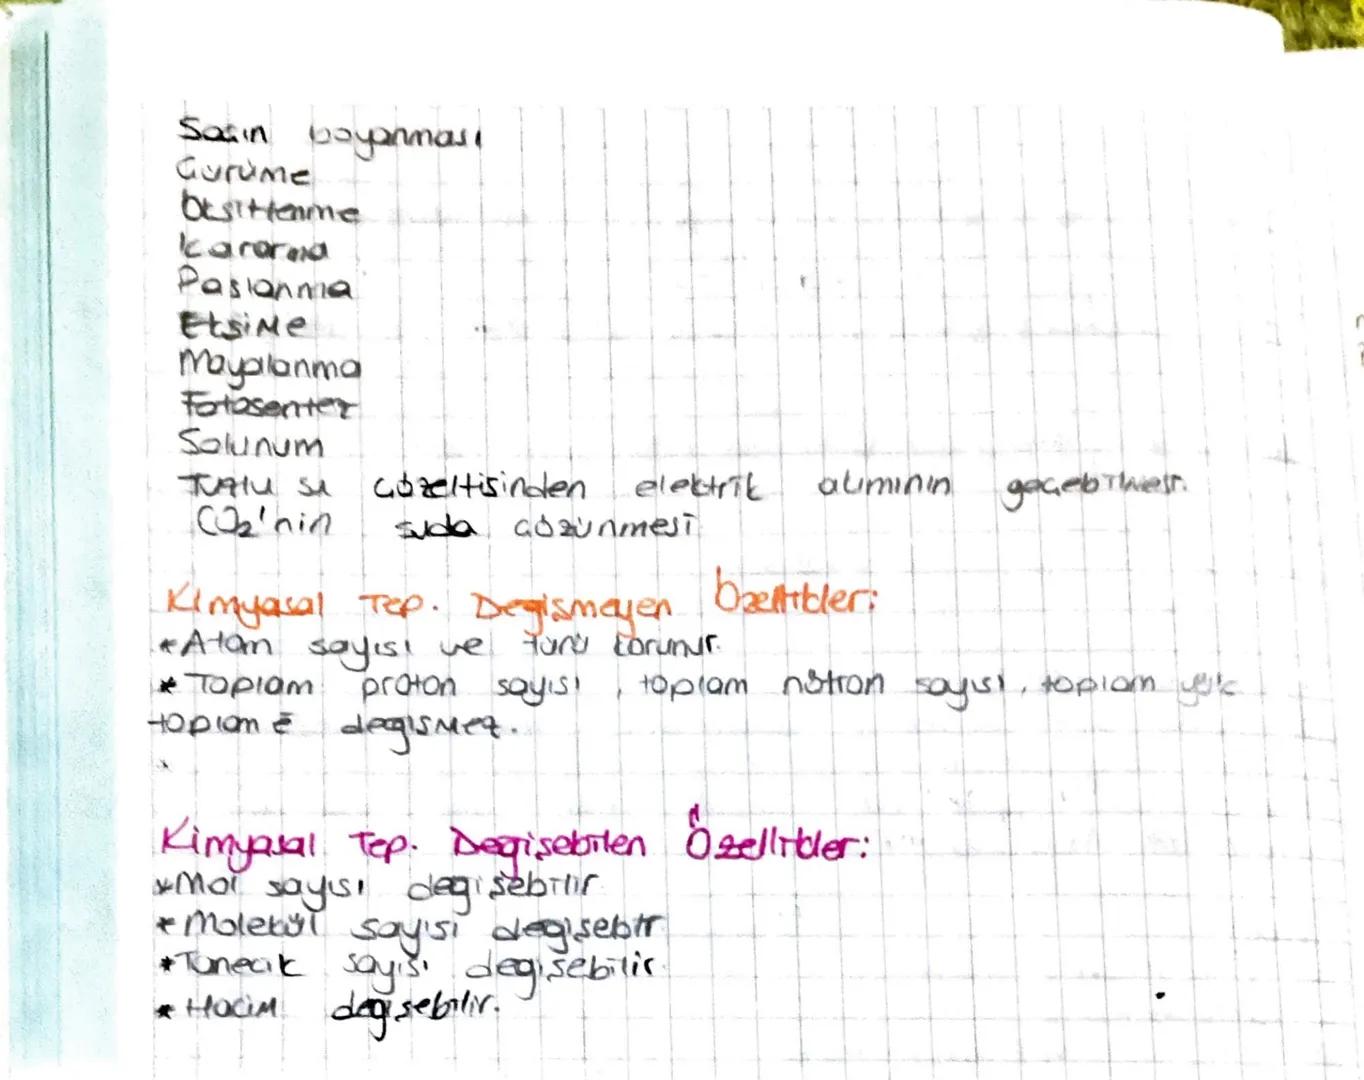 Saçın boyanması
Çürüme
Oksitlenme
Kararma
Paslanma
Ekşime
Mayalanma
Fotosentez
Solunum
Tuzlu su çözeltisinden elektrik akımının geçebilmesi.
CO2'nin suda çözünmesi
Kimyasal Tep. Değişmeyen Özellikler:
*Atom sayısı ve türü korunur.
*Toplam proton sayısı, toplam nötron sayısı, toplam yük
toplam e⁻ değişmez.
Kimyasal Tep. Değişebilen Özellikler:
*Mol sayısı değişebilir
*Molekül sayısı değişebilir
*Tanecik sayısı değişebilir.
*Hacim değişebilir.